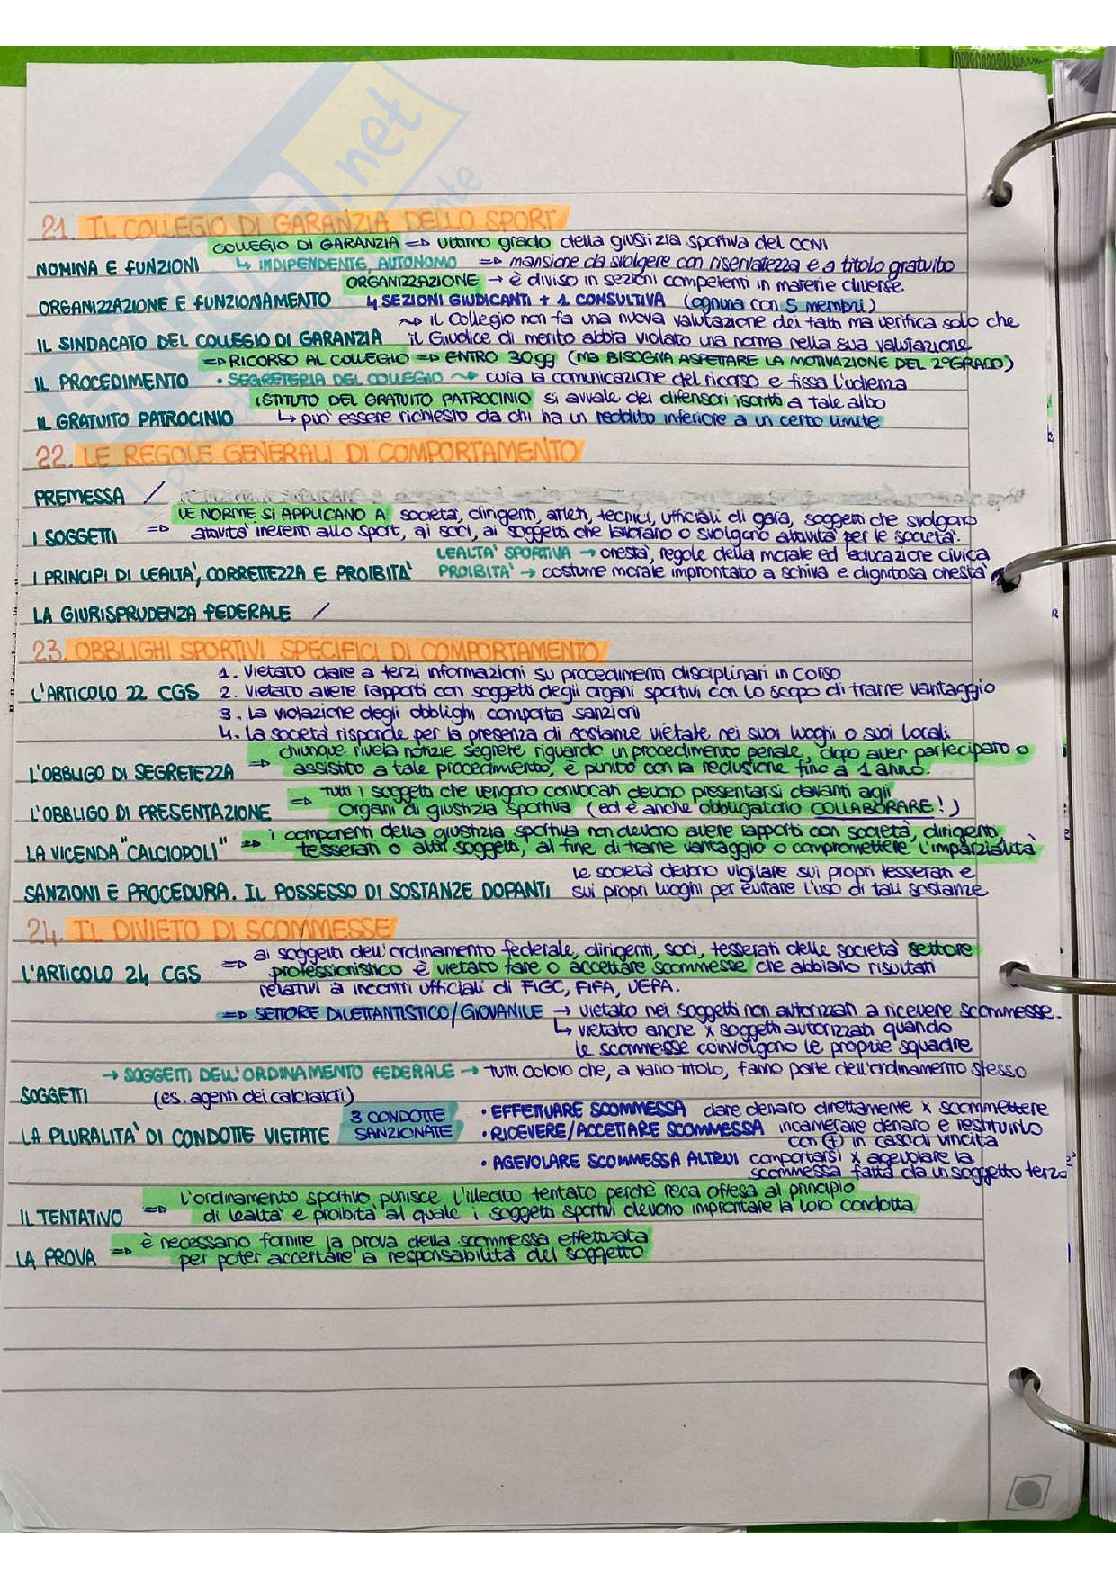 21. IL COLLEGIO DI GARANZIA DELLO SPORT
COLLEGIO DI GARANZIA => ultimo grado della giustizia sportiva del CONI
NOMINA E FUNZIONI ↳ INDIPENDENTE, AUTONOMO => mansione da svolgere con riservatezza e a titolo gratuito
ORGANIZZAZIONE → è diviso in sezioni competenti in materie diverse.
ORGANIZZAZIONE E FUNZIONAMENTO 4 SEZIONI GIUDICANTI + 1 CONSULTIVA (ognuna con 5 membri)
~> il Collegio non fa una nuova valutazione dei fatti ma verifica solo che
IL SINDACATO DEL COLLEGIO DI GARANZIA il Giudice di merito abbia violato una norma nella sua valutazione
=> RICORSO AL COLLEGIO => ENTRO 30gg (MA BISOGNA ASPETTARE LA MOTIVAZIONE DEL 2°GRADO)
IL PROCEDIMENTO • SEGRETERIA DEL COLLEGIO ~> cura la comunicazione del ricorso e fissa l'udienza
ISTITUTO DEL GRATUITO PATROCINIO si avvale dei difensori iscritti a tale albo
IL GRATUITO PATROCINIO ↳ può essere richiesto da chi ha un reddito inferiore a un certo limite
22. LE REGOLE GENERALI DI COMPORTAMENTO
PREMESSA /
LE NORME SI APPLICANO A società, dirigenti, atleti, tecnici, ufficiali di gara, soggetti che svolgano
I SOGGETTI => attività inerenti allo sport, ai soci, ai soggetti che lavorano o svolgano attività per le società.
LEALTA' SPORTIVA → onestà, regole della morale ed educazione civica
I PRINCIPI DI LEALTA', CORRETTEZZA E PROIBITA' PROIBITA' → costume morale improntato a schiva e dignitosa onestà
LA GIURISPRUDENZA FEDERALE /
23. OBBLIGHI SPORTIVI SPECIFICI DI COMPORTAMENTO
1. Vietato dare a terzi informazioni su procedimenti disciplinari in corso
L'ARTICOLO 22 CGS 2. Vietato avere rapporti con soggetti degli organi sportivi con lo scopo di trarne vantaggio
3. La violazione degli obblighi comporta sanzioni
4. La società risponde per la presenza di sostanze vietate nei suoi luoghi o suoi locali
chiunque rivela notizie segrete riguardo un procedimento penale, dopo aver partecipato o
L'OBBLIGO DI SEGRETEZZA => assistito a tale procedimento, è punito con la reclusione fino a 1 anno.
=> Tutti i soggetti che vengono convocati devono presentarsi davanti agli
L'OBBLIGO DI PRESENTAZIONE Organi di giustizia sportiva (ed è anche obbligatorio COLLABORARE!)
i componenti della giustizia sportiva non devono avere rapporti con società, dirigenti
LA VICENDA "CALCIOPOLI" => tesserati o altri soggetti, al fine di trarne vantaggio o compromettere l'imparzialità
le società devono vigilare sui propri tesserati e
SANZIONI E PROCEDURA. IL POSSESSO DI SOSTANZE DOPANTI sui propri luoghi per evitare l'uso di tali sostanze
24. IL DIVIETO DI SCOMMESSE
ai soggetti dell'ordinamento federale, dirigenti, soci, tesserati delle società settore
L'ARTICOLO 24 CGS => professionistico è vietato fare o accettare scommesse che abbiano risultati
relativi a incontri ufficiali di FIGC, FIFA, UEFA.
=> SETTORE DILETTANTISTICO/GIOVANILE → vietato nei soggetti non autorizzati a ricevere scommesse.
↳ vietato anche x soggetti autorizzati quando
le scommesse coinvolgono le proprie squadre
→ SOGGETTI DELL'ORDINAMENTO FEDERALE → tutti coloro che, a vario titolo, fanno parte dell'ordinamento stesso
SOGGETTI (es. agenti dei calciatori)
3 CONDOTTE • EFFETTUARE SCOMMESSA dare denaro direttamente x scommettere
LA PLURALITA' DI CONDOTTE VIETATE SANZIONATE • RICEVERE/ACCETTARE SCOMMESSA incamerare denaro e restituirlo
con (+) in caso di vincita
• AGEVOLARE SCOMMESSA ALTRUI comportarsi x agevolare la
scommessa fatta da un soggetto terzo
L'ordinamento sportivo punisce l'illecito tentato perché reca offesa al principio
IL TENTATIVO => di lealtà e proibità al quale i soggetti sportivi devono improntare la loro condotta
è necessario fornire la prova della scommessa effettuata
LA PROVA => per poter accertare la responsabilità del soggetto
.net